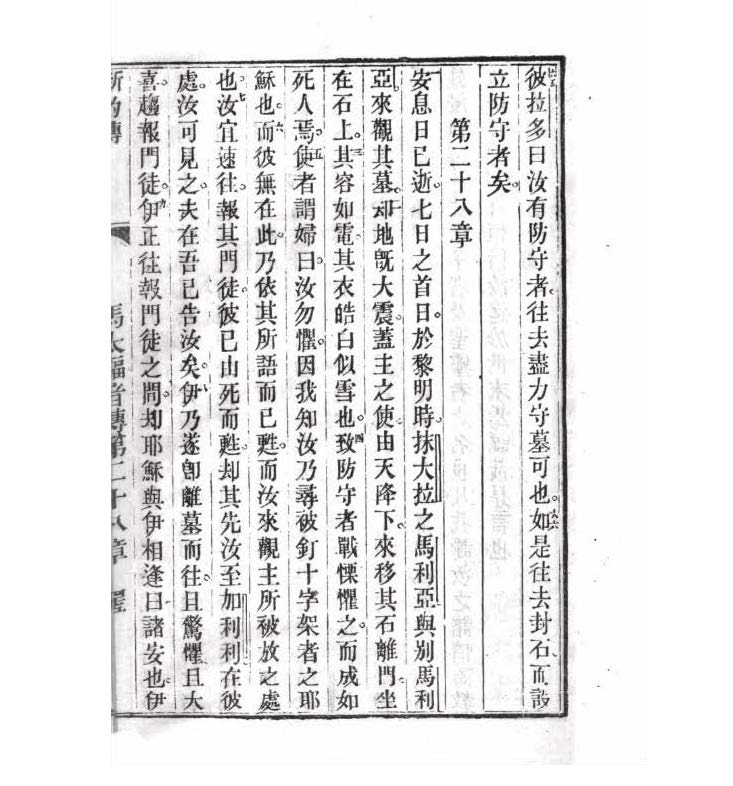 彼拉多曰汝有防守者。往去盡力守墓可也。六六如是往去封石而設
立防守者矣。
第二十八章
安息日已逝。七日之首日。於黎明時。抹大拉之馬利亞與別馬利
亞來觀其墓。二却地旣大震。蓋主之使由天降下。來移其石離門。坐
在石上。三其容如電。其衣皓白似雪也。四致防守者戰慄懼之。而成如
死人焉。五使者謂婦曰汝勿懼。因我知汝乃尋被釘十字架者之耶
穌也。六而彼無在此。乃依其所語而已甦。而汝來觀主所被放之處
也。七汝宜速往。報其門徒。彼已由死而甦。却其先汝至加利利在彼
處。汝可見之。夫在吾已告汝矣。八伊乃遂卽離墓而往。且驚懼且大
喜。趨報門徒。九伊正往報門徒之間。却耶穌與伊相逢曰。諸安也。伊
馬太福音傳第二十八章